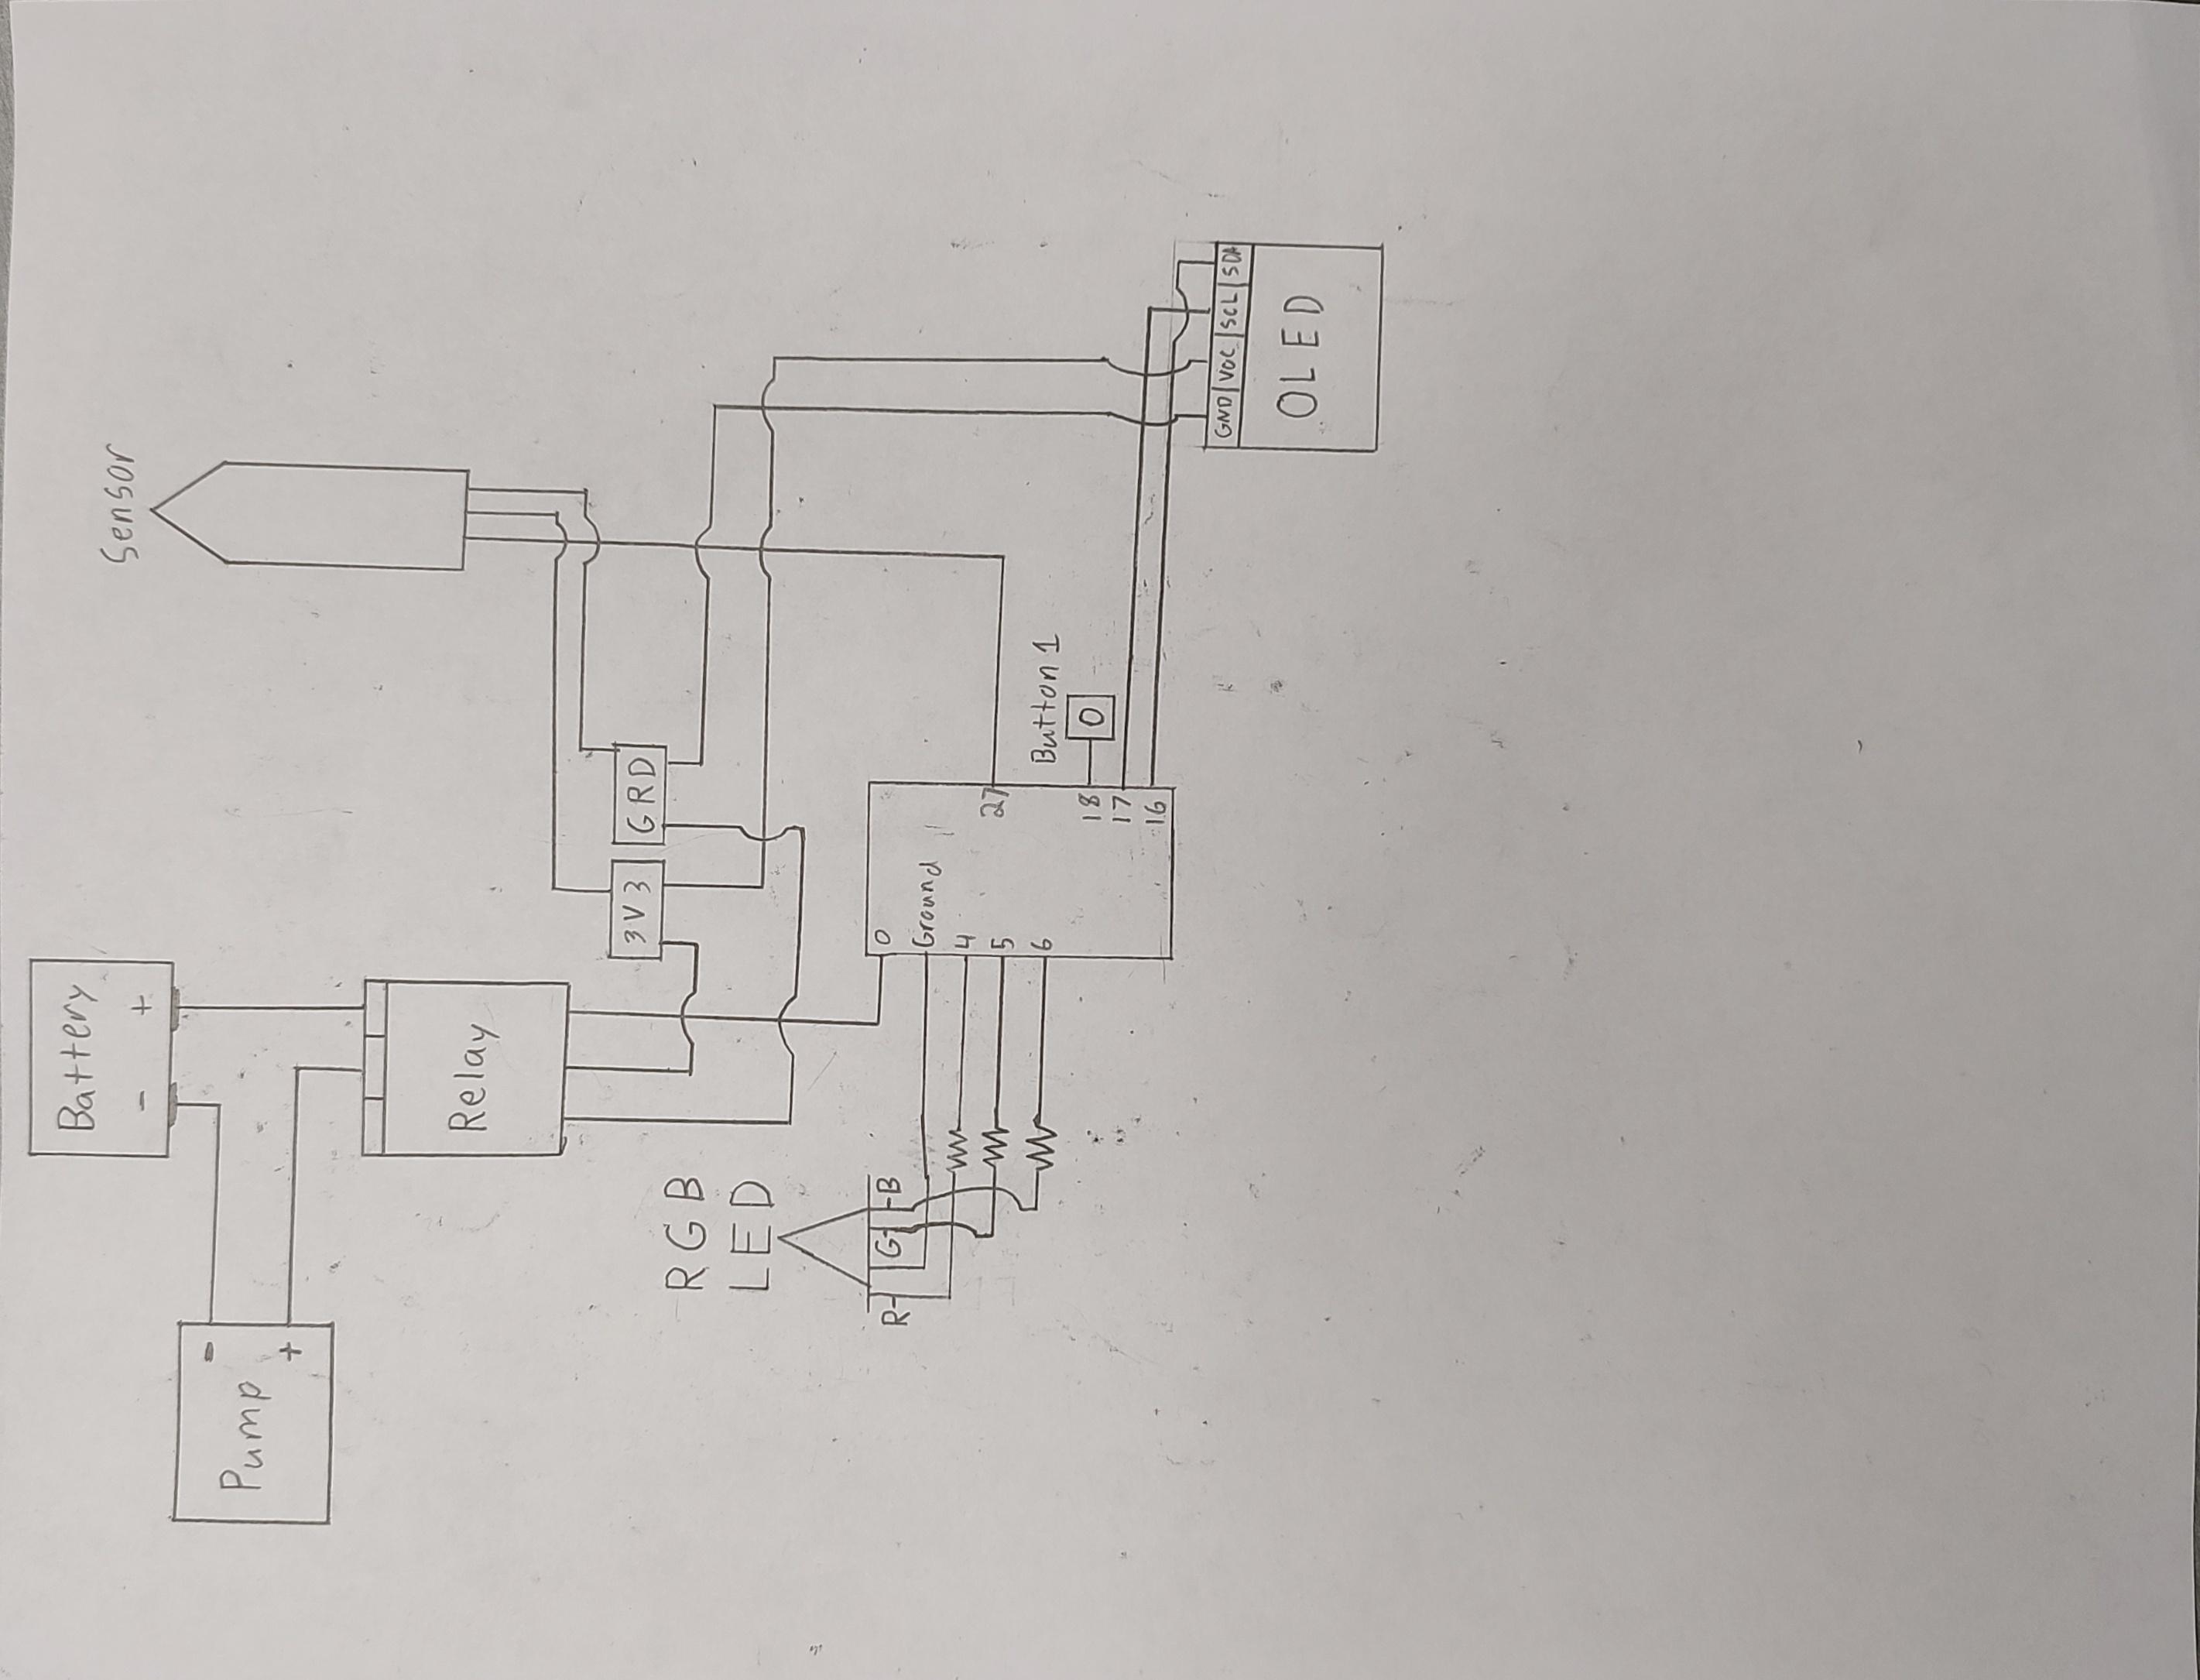 Battery
- +
Sensor
-
Pump
+
Relay
3V3
GRD
RGB
LED
R
G
B
0
Ground
4
5
6
27
Button 1
0
18
17
16
GND VOC SCL SDA
OLED